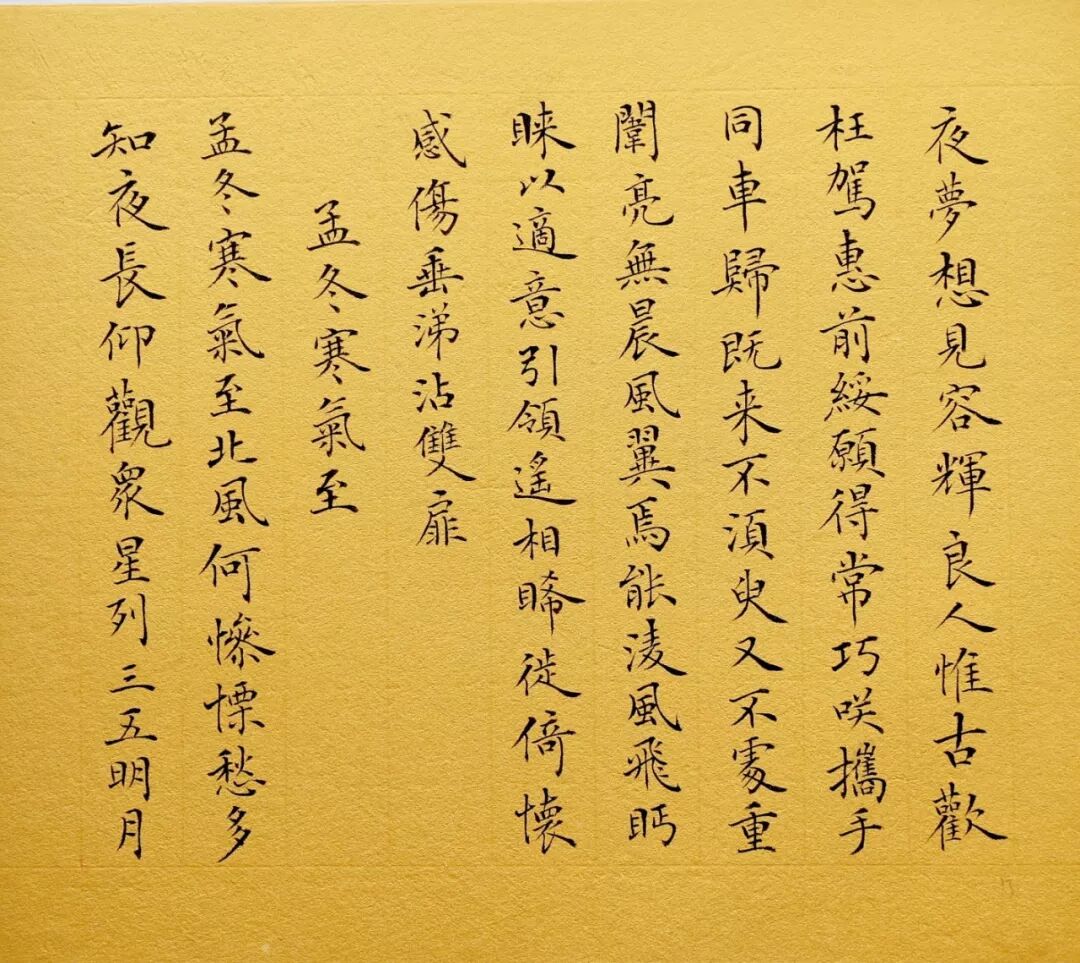 夜夢想見容輝良人惟古歡
枉駕惠前綏願得常巧咲攜手
同車歸既来不須臾又不處重
闈亮無晨風翼焉能淩風飛眄
睞以適意引領遥相睎徙倚懷
感傷垂涕沾雙扉
孟冬寒氣至
孟冬寒氣至北風何慘慄愁多
知夜長仰觀衆星列三五明月